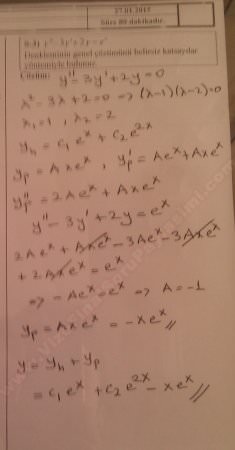 27.01.2017
Süre 80 dakikadır.
y''-3y'+2y=e^x
Denkleminin genel çözümünü belirsiz katsayılar
yöntemiyle bulunuz.
Çözüm: y''-3y'+2y=0
λ²-3λ+2=0 ⇒ (λ-1)(λ-2)=0
λ₁=1, λ₂=2
y_h = c₁e^x + c₂e^{2x}
y_p = Axe^x, y_p' = Ae^x + Axe^x
y_p'' = 2Ae^x + Axe^x
y''-3y'+2y=e^x
2Ae^x + Axe^x - 3Ae^x - 3Axe^x
+2Axe^x = e^x
⇒ -Ae^x = e^x ⇒ A=-1
y_p = Axe^x = -xe^x //
y = y_h + y_p
= c₁e^x + c₂e^{2x} - xe^x //